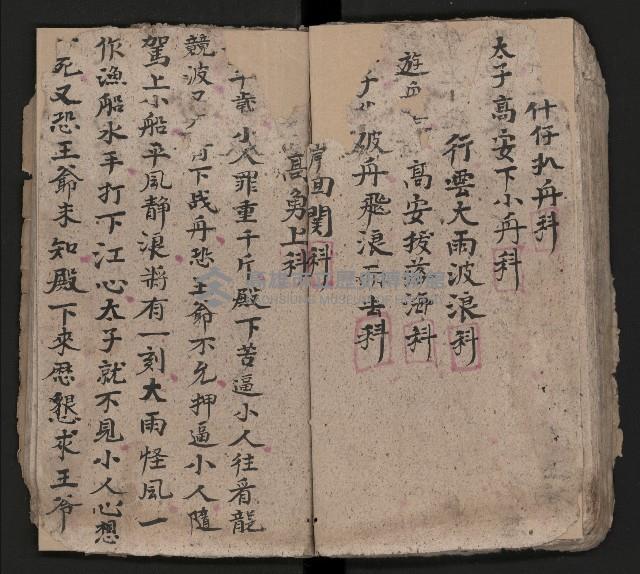 什仔扒舟科
太子高安下小舟科
行雲大雨波浪科
遊
高安拔落海科
破舟飛浪下去科
岸回関科
高勇上科
千歲小人罪重千斤殿下苦逼小人往看龍
競波
下战舟恐王爺不允押逼小人隨
駕上小船平風静浪將有一刻大雨怪風一
作漁船水手打下江心太子就不見小人心想
死又恐王爺未知殿下來歷懇求王爷
高雄市立歷史博物館
KAOHSIUNG MUSEUM OF HISTORY